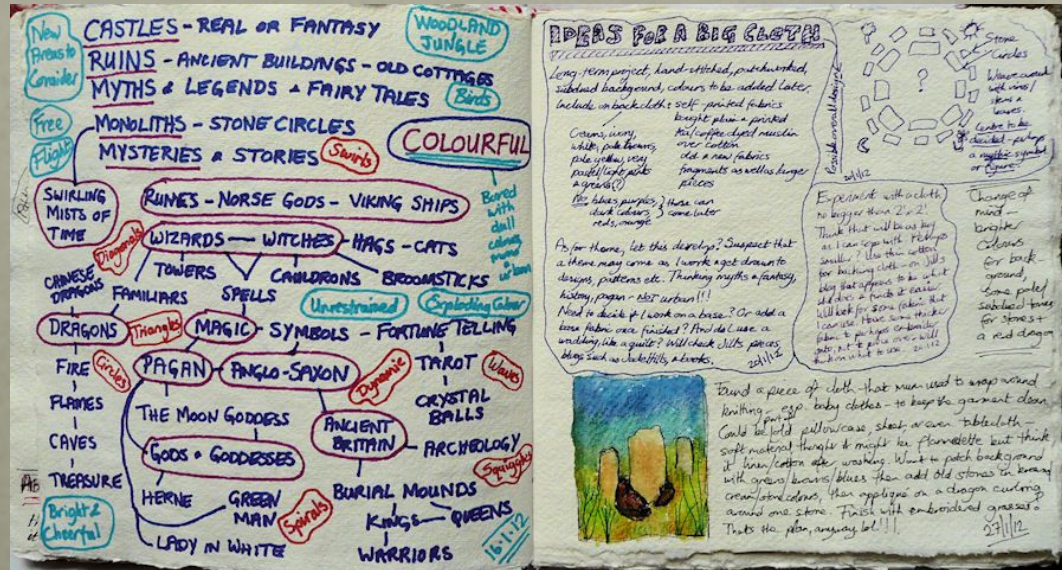 New
Areas to
Consider
CASTLES - REAL OR FANTASY
WOODLAND
JUNGLE
RUINS - ANCIENT BUILDINGS - OLD COTTAGES
MYTHS & LEGENDS & FAIRY TALES
Birds
Free
Flight
MONOLITHS - STONE CIRCLES
COLOURFUL
MYSTERIES & STORIES
Swirls
SWIRLING
MISTS OF
TIME
RUNES - NORSE GODS - VIKING SHIPS
Bored
with
dull
urban
Diagonals
WIZARDS - WITCHES - HAGS - CATS
TOWERS
CAULDRONS
BROOMSTICKS
CHINESE
DRAGONS
FAMILIARS
SPELLS
Unrestrained
Exploding Colour
DRAGONS
Triangles
MAGIC - SYMBOLS - FORTUNE TELLING
FIRE
Circles
PAGAN - ANGLO-SAXON
Dynamic
TAROT
Waves
FLAMES
THE MOON GODDESS
CRYSTAL
BALLS
CAVES
GODS & GODDESSES
ANCIENT
BRITAIN
ARCHEOLOGY
Squiggles
TREASURE
HERNE
GREEN
MAN
Spirals
BURIAL MOUNDS
KINGS - QUEENS
Bright &
Cheerful
LADY IN WHITE
WARRIORS
16.1.12
IDEAS FOR A BIG CLOTH
Long-term project, hand-stitched, patchworked,
subdued background, colours to be added later.
Include on backcloth: self-printed fabrics
bought plain & printed
tea/coffee dyed muslin
over cotton
old & new fabrics
fragments as well as larger
pieces
Creams, ivory,
white, pale browns,
pale yellow, very
pastel/light pinks
& greens(?)
No blues, purples,
dark colours
reds, orange
these can
come later
As for theme, let this develop? Suspect that
a theme may come as I work & get drawn to
designs, patterns etc. Thinking myths & fantasy,
history, pagan - NOT urban!!!
Need to decide if I work on a base? Or add a
base fabric once finished? And do I use a
wadding, like a quilt? Will check Jill's pieces,
blogs such as Jude Hill's, & books.
20/1/12
Possible overall design
?
Stone
Circles
Weave around
with vines/
stems &
leaves.
Centre to be
decided - perhaps
a mythic symbol
or figure
20/1/12
Experiment with a cloth
no bigger than 2' x 2'!
Think that will be as big
as I can cope with. Perhaps
smaller? Use thin cotton
for backing cloth - on Jill's
blog that appears to be what
she does & finds it easier.
Will look for some fabric that
I can use. Have some thicker
fabric to perhaps embroider
onto, but
what to use. 20/1/12
Change of
mind -
brighter
colours
for back-
ground,
some pale/
subdued tones
for stones &
a red dragon
Found a piece of cloth that mum used to wrap around
knitting - esp. baby clothes - to keep the garment clean.
Could be part of old pillowcase, sheet, or even tablecloth -
soft material thought it might be flannelette but think
it linen/cotton after washing. Want to patch background
with greens/browns/blues then add old stones in browns/
cream/stone colours, then appliqué on a dragon curling
around one stone. Finish with embroidered grasses.
That's the plan, anyway lol!!!
27/1/12